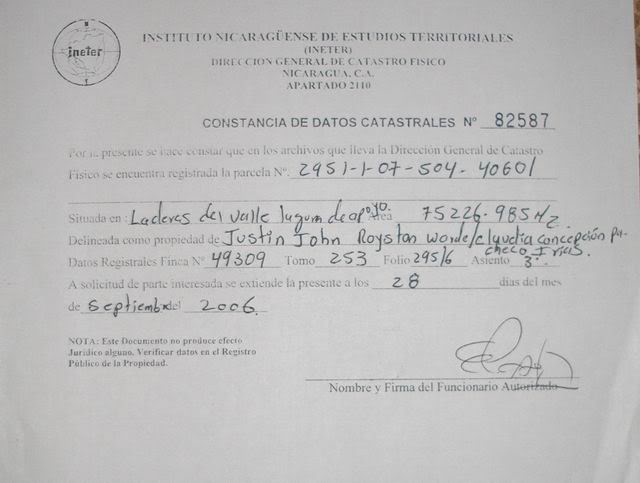 ineter
INSTITUTO NICARAGÜENSE DE ESTUDIOS TERRITORIALES
(INETER)
DIRECCION GENERAL DE CATASTRO FISICO
NICARAGUA, C.A.
APARTADO 2110
CONSTANCIA DE DATOS CATASTRALES Nº 82587
Por la presente se hace constar que en los archivos que lleva la Dirección General de Catastro
Físico se encuentra registrada la parcela Nº. 2951-1-07-504-40601
Situada en : Laderas del valle laguna de apoyo. Area 75226.985 M2.
Delineada como propiedad de Justin John Royston Wonde/claudia concepción pacheco Irías.
Datos Registrales Finca Nº 49309 Tomo 253 Folio 295/6 Asiento 3º.
A solicitud de parte interesada se extiende la presente a los 28 días del mes
de septiembre del 2006.
NOTA: Este Documento no produce efecto
Jurídico alguno. Verificar datos en el Registro
Público de la Propiedad.
Nombre y Firma del Funcionario Autorizado